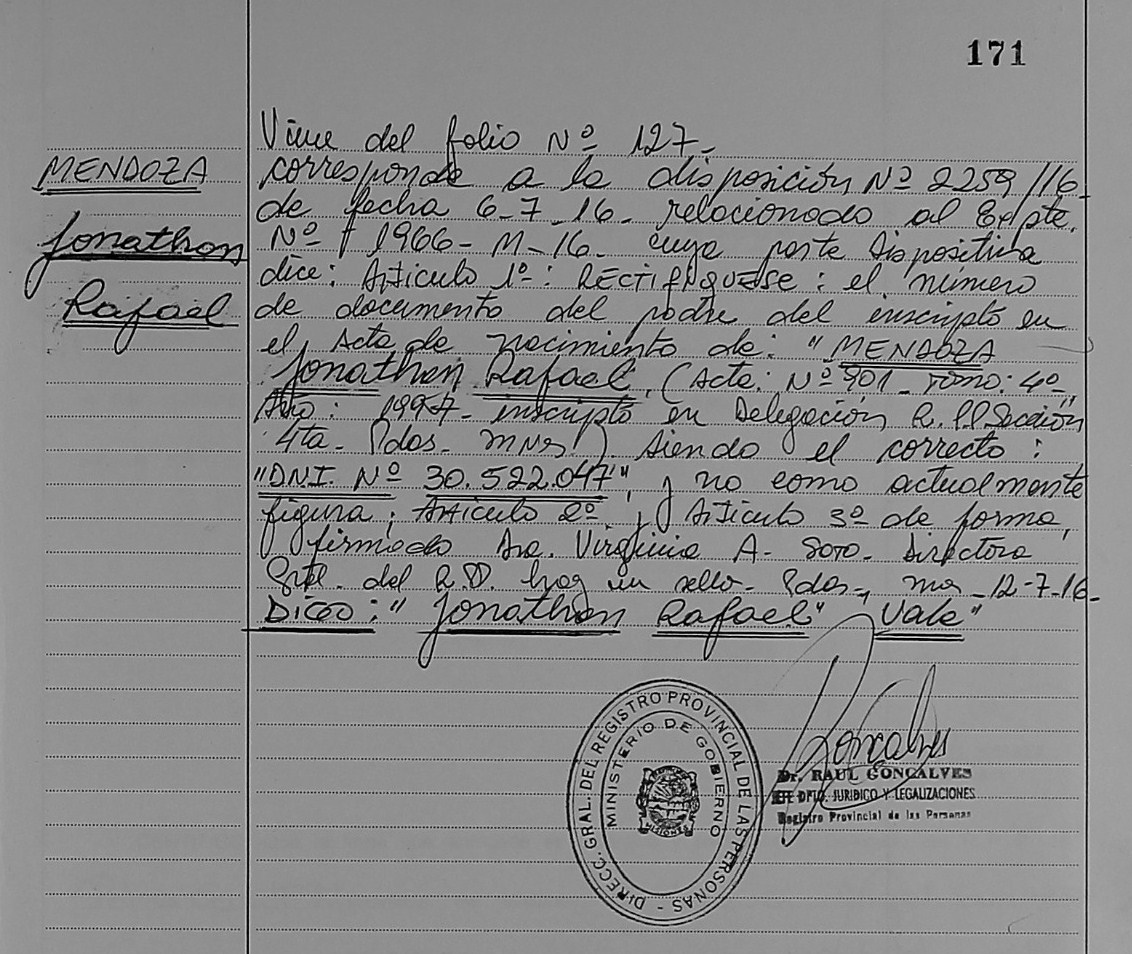 171
MENDOZA
Jonathan
Rafael
Viene del folio Nº 127.
corresponde a la disposición Nº 2259/16-
de fecha 6-7-16- relacionado al Expte.
Nº 1966-M-16- cuya parte dispositiva
dice: Artículo 1º: RECTIFIQUESE: el número
de documento del padre del inscripto en
el Acta de nacimiento de: "MENDOZA
Jonathan Rafael" (Acta: Nº 901- Tomo: 4º-
Año: 1997- inscripto en Delegación R.P. Sección
4ta- Pdas- Mnes) siendo el correcto:
"DNI. Nº 30.522.047", y no como actualmente
figura; Artículo 2º, y Artículo 3º de forma,
firmado Dra. Virginia A. Soto- Directora
Gral- del R.P. hay un sello- Pdas-, mns-12-7-16-
Digo: "Jonathan Rafael" Vale"
DIRECC. GRAL. DEL REGISTRO PROVINCIAL DE LAS PERSONAS -
MINISTERIO DE GOBIERNO
MISIONES
Goncalves
Dr. RAUL GONCALVES
JEFE DPTO. JURIDICO Y LEGALIZACIONES
Registro Provincial de las Personas